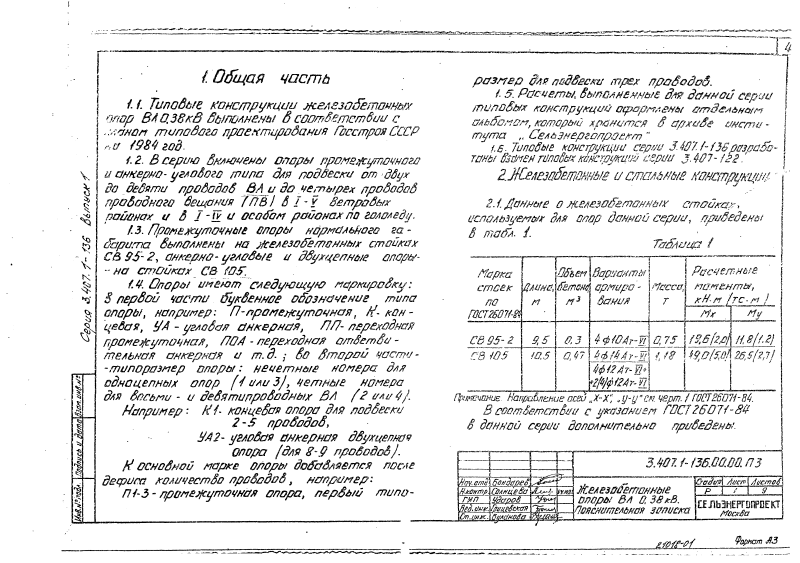 4
1. Общая часть
1.1. Типовые конструкции железобетонных
опор ВЛ 0,38 кВ выполнены в соответствии с
планом типового проектирования Госстроя СССР
на 1984 год.
1.2. В серию включены опоры промежуточного
и анкерно-углового типа для подвески от двух
до девяти проводов ВЛ и до четырех проводов
проводного вещания (ПВ) в I-V ветровых
районах и в I-IV и особом районах по гололеду.
1.3. Промежуточные опоры нормального га-
барита выполнены на железобетонных стойках
СВ 95-2, анкерно-угловые и двухцепные опоры-
- на стойках СВ 105.
1.4. Опоры имеют следующую маркировку:
в первой части буквенное обозначение типа
опоры, например: П-промежуточная, К-кон-
цевая, УА-угловая анкерная, ПП-переходная
промежуточная, ПОА-переходная ответви-
тельная анкерная и т.д.; во второй части-
-типоразмер опоры: нечетные номера для
одноцепных опор (1 или 3), четные номера
для восьми- и девятипроводных ВЛ (2 или 4).
Например: К1-концевая опора для подвески
2-5 проводов,
УА2-угловая анкерная двухцепная
опора (для 8-9 проводов).
К основной марке опоры добавляется после
дефиса количество проводов, например:
П1-3-промежуточная опора, первый типо-
размер для подвески трех проводов.
1.5. Расчеты, выполненные для данной серии
типовых конструкций оформлены отдельным
альбомом, который хранится в архиве инсти-
тута „Сельэнергопроект"
1.6. Типовые конструкции серии 3.407.1-136 разрабо-
таны взамен типовых конструкций серии 3.407-122.
2. Железобетонные и стальные конструкции.
2.1. Данные о железобетонных стойках,
используемых для опор данной серии, приведены
в табл. 1.
Таблица 1
Марка стоек по ГОСТ 26071-84 Длина, м Объем бетона, м³ Варианты армиро-вания Масса, т Расчетные моменты, кН·м (тс·м)
Мх Му
СВ 95-2 9,5 0.3 4ф10Ат-VI 0,75 19,6(2,0) 11.8(1.2)
СВ 105 10.5 0,47 4ф14Ат-VI 1,18 49,0(5,0) 26,5(2,7)
4ф12Ат-VI+
+2(4)ф12Ат-VI
Примечание. Направление осей „х-х", „у-у" см. черт. 1 ГОСТ 26071-84.
В соответствии с указанием ГОСТ 26071-84
в данной серии дополнительно приведены.
Серия 3.407.1-136 Выпуск 1
Инв.№ подл. Подпись и дата Взам.инв.№
3.407.1-136.00.00.ПЗ
Нач.отд. Бондарев
Н.контр. Солнцева
ГИП Ударов
Вед.инж. Грицевская
Ст.инж. Буланова
Железобетонные
опоры ВЛ 0,38 кВ.
Пояснительная записка
Стадия Лист Листов
Р 1 9
СЕЛЬЭНЕРГОПРОЕКТ
Москва
21018-01
Формат А3